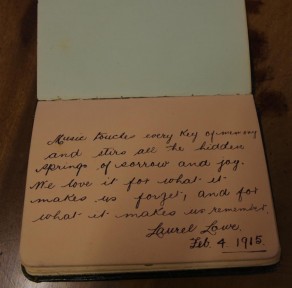 Music touches every key of memory
and stirs all the hidden
springs of sorrow and joy.
We love it for what it
makes us forget, and for
what it makes us remember.
Laurel Lowe.
Feb. 4. 1915.